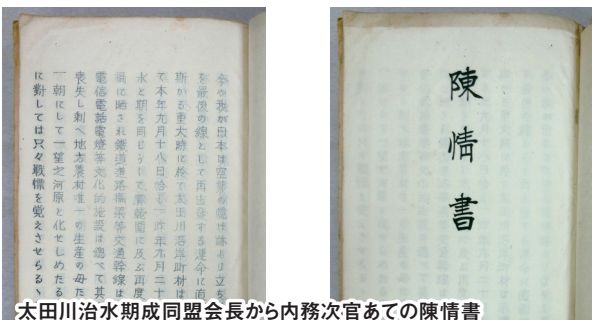 陳情書
今や我が日本は空前の立ち
を最後の線として再出発する運命に直
斯かる重大時に於て太田川沿岸町村は
て本年九月十八日恰も一昨年九月二十
水と期を同じうして廣範囲に及ぶ再度
禍に晒され鉄道道路橋梁等交通幹線は
電信電話電燈等文化的施設は總べて其
喪失し剰へ地方農村唯一の生産の母た
一朝にして一望之河原と化せしめたる
に對しては只々戦慄を覚えさせらるゝ
太田川治水期成同盟会長から内務次官あての陳情書